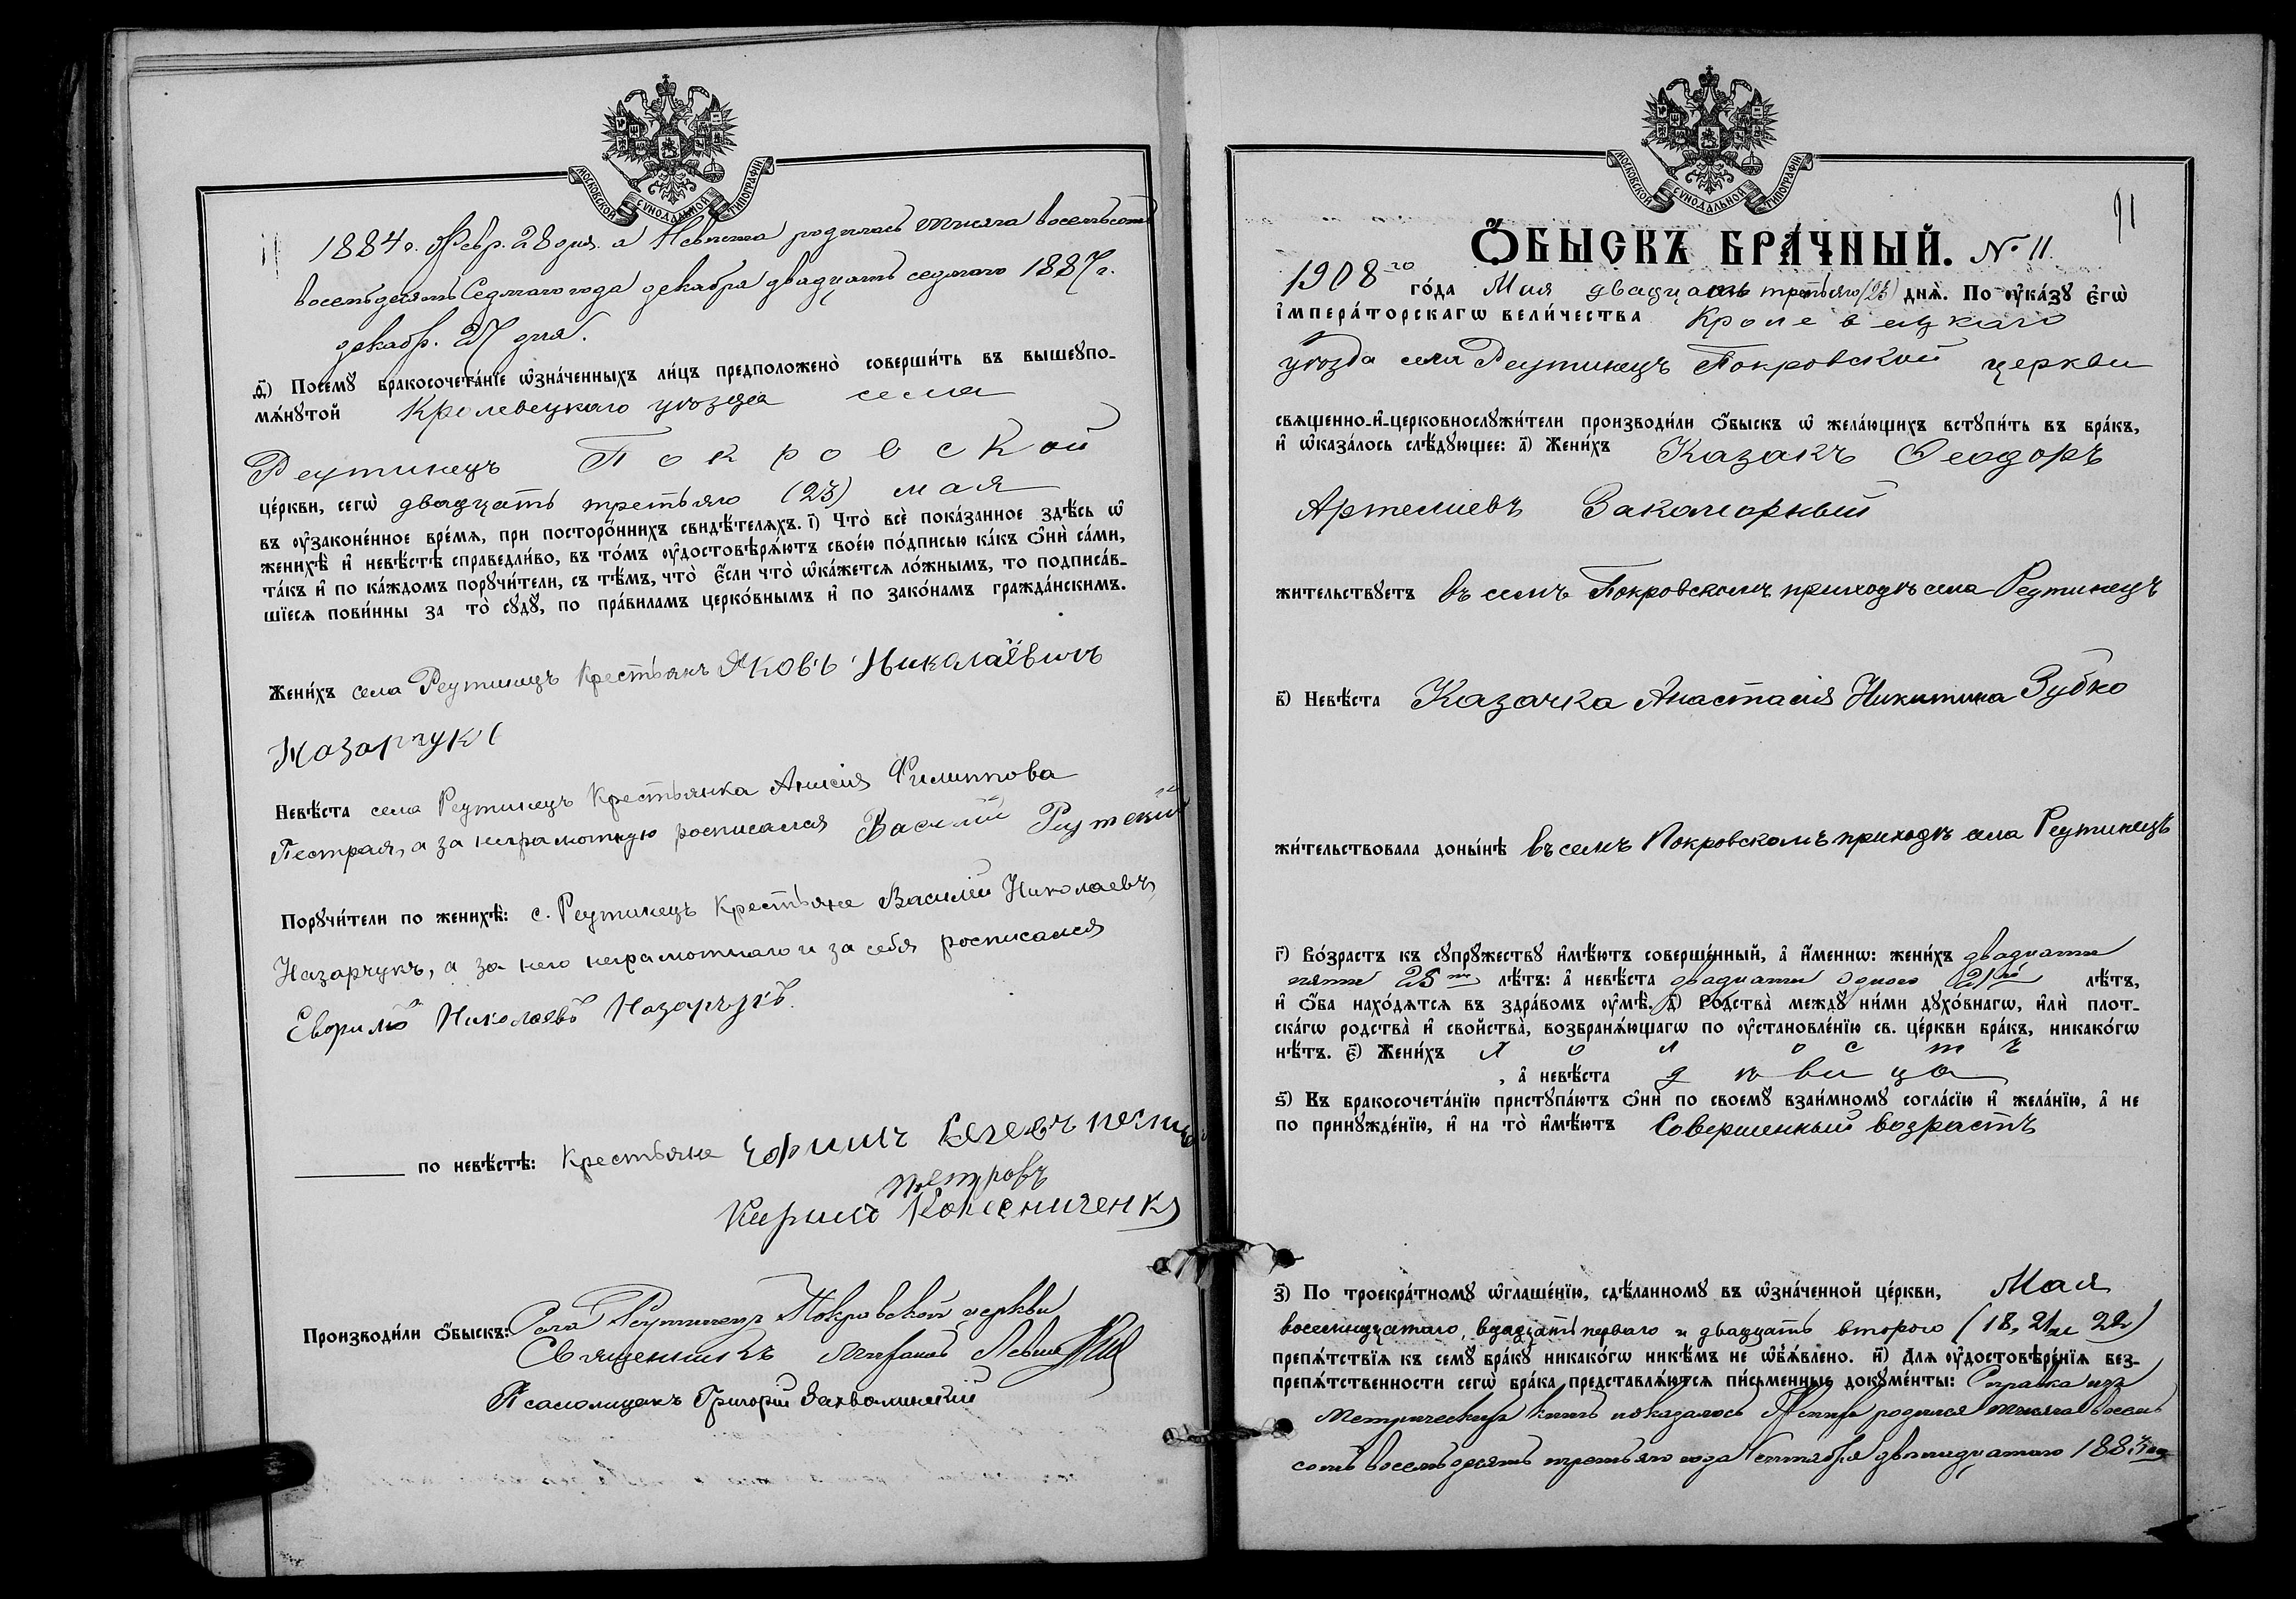 МОСКОВСКОЙ СѴНОДАЛЬНОЙ ТИПОГРАФІИ
1884 г. Февр. 28 дня. а Невѣста родилась тысяча восемьсотъ
восемьдесятъ Седьмого года декабря двадцать седьмого 1887 г.
декабр. 27 дня.
д҃) Посемꙋ̀ бракосочета́нїе ѡ҆зна́ченныхъ ли́цъ предположено̀ соверши́ть въ вышеꙋпо-
мѧ́нꙋтой Кролевецкаго уѣзда села
Реутинецъ Покровской
це́ркви, сегѡ̀ двадцать третьяго (23) мая
въ ᲂу҆законе́нное вре́мѧ, при посторо́ннихъ свидѣ́телѧхъ. і҃) Что̀ всѐ пока́занное здѣ́сь ѡ҆
женихѣ̀ и҆ невѣ́стѣ справедли́во, въ то́мъ ᲂу҆достовѣрѧ́ютъ свое́ю по́дписью ка́къ ѻ҆нѝ са́ми,
та́къ и҆ по ка́ждомъ порꙋчи́тели, съ тѣ́мъ, что̀ є҆́сли что̀ ѡ҆ка́жетсѧ ло́жнымъ, то подписа́в-
шїесѧ пови́нны за то̀ сꙋдꙋ̀, по пра́виламъ церко́внымъ и҆ по зако́намъ гражда́нскимъ.
Жени́хъ села Реутинецъ Крестьянъ Яковъ Николаевичъ
Назарчукъ
Невѣ́ста села Реутинецъ Крестьянка Анисія Филиппова
Пестрая, а за неграмотную росписался Василій Реутскій
Порꙋчи́тели по женихѣ̀: с. Реутинецъ Крестьяне Василій Николаевъ
Назарчукъ, а за него неграмотнаго и за себя росписался
Ефримъ Николаевъ Назарчукъ.
по невѣ́стѣ: Крестьяне Ефимъ
Петровъ
Кирилъ Колесниченко
Производи́ли ѻ҆́быскъ: Села Реутинецъ Покровской церкви
Священникъ
Псаломщикъ Григорій Захвалинскій
МОСКОВСКОЙ СѴНОДАЛЬНОЙ ТИПОГРАФІИ
11
Ѻ҆́БЫСКЪ БРА́ЧНЫЙ. № 11.
1908го го́да Мая двадцать третьяго (23) днѧ̀. По ᲂу҆ка́зꙋ є҆гѡ̀
і҆мпера́торскагѡ вели́чества Кролевецкаго
уѣзда села Реутинецъ Покровской церкви
свѧщенно-и҆-церковнослꙋжи́тели производи́ли ѻ҆́быскъ ѡ҆ жела́ющихъ встꙋпи́ть въ бра́къ,
и҆ ѡ҆каза́лось слѣ́дꙋющее: а҃) Жени́хъ Казакъ Ѳеодоръ
Артемиевъ Закоморный
жи́тельствꙋетъ въ семъ Покровскомъ приходѣ села Реутинецъ
в҃) Невѣ́ста Казачка Анастасія Никитина Зубко
жи́тельствовала доны́нѣ въ семъ Покровскомъ приходѣ села Реутинецъ
г҃) Во́зрастъ къ сꙋпрꙋ́жествꙋ и҆мѣ́ютъ соверше́нный, а҆ и҆́меннѡ: жени́хъ двадцати
пяти 25ти лѣ́тъ: а҆ невѣ́ста двадцати одного 21го лѣ́тъ,
и҆ ѻ҆́ба нахо́дѧтсѧ въ здра́вомъ ᲂу҆мѣ̀. д҃) Родства̀ междꙋ̀ ни́ми дꙋхо́внагѡ, и҆лѝ плот-
ска́гѡ родства̀ и҆ свойства̀, возбранѧ́ющагѡ по ᲂу҆становле́нїю св. це́ркви бра́къ, никако́гѡ
нѣ́тъ. є҃) Жени́хъ холостъ
, а҆ невѣ́ста дѣвица
ѕ҃) Въ бракосочета́нїю пристꙋпа́ютъ ѻ҆нѝ по своемꙋ̀ взаи́мномꙋ согла́сїю и҆ жела́нїю, а҆ не
по принꙋжде́нїю, и҆ на то̀ и҆мѣ́ютъ Совершенный возрастъ
з҃) По троекра́тномꙋ ѡ҆глаше́нїю, сдѣ́ланномꙋ въ ѡ҆зна́ченной це́ркви, Мая
восемнадцатаго, двадцать перваго и двадцать второго (18, 21 и 22)
препѧ́тствїѧ къ семꙋ̀ бра́кꙋ никако́гѡ никѣ́мъ не ѡ҆б̾ѧ́влено. и҃) Для ᲂу҆достовѣре́нїѧ без-
препѧ́тственности сегѡ̀ бра́ка представлѧ́ютсѧ пи́сьменные докꙋме́нты: Справка изъ
Метрическихъ книгъ показалось Женихъ родился тысяча восемь
сотъ восемьдесятъ третьяго года Сентября двѣнадцатаго 1883 год